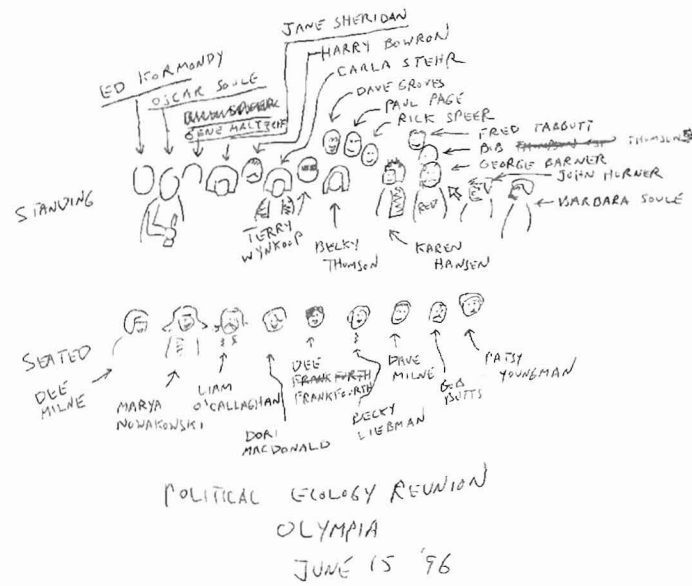 JANE SHERIDAN
HARRY BOWRON
CARLA STEHR
ED KORMONDY
OSCAR SOULE
GENE MALTZEFF
DAVE GROVES
PAUL PAGE
RICK SPEER
FRED TABBUTT
BOB THOMSON
GEORGE BARNER
JOHN HURNER
BARBARA SOULE
STANDING
RED
TERRY
WYNKOOP
BECKY
THOMSON
KAREN
HANSEN
SEATED
DEE
MILNE
MARYA
NOWAKOWSKI
LIAM
O'CALLAGHAN
DORI
MACDONALD
DEE
FRANKFORTH
FRANKFOURTH
BECKY
LIEBMAN
DAVE
MILNE
BOB
BUTTS
PATSY
YOUNGMAN
POLITICAL ECOLOGY REUNION
OLYMPIA
JUNE 15 '96